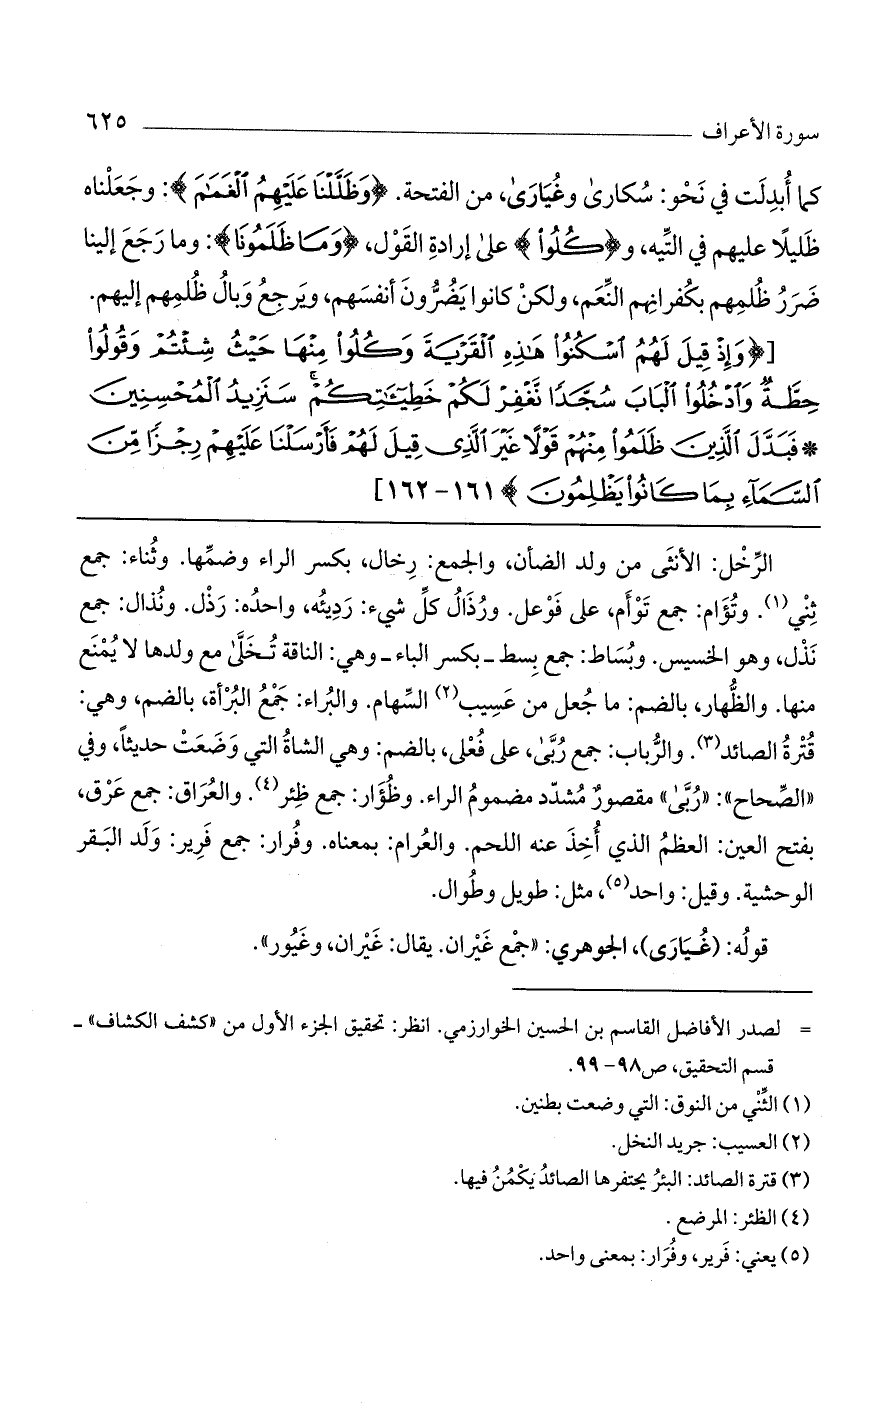 سورة الأعراف ٦٢٥
كما أُبدِلَت في نَحْو: سُكارىٰ وغُيَارَىٰ، من الفتحة. ﴿وَظَلَّلْنَا عَلَيْهِمُ ٱلْغَمَـٰمَ﴾: وجَعَلْناه
ظَليلًا عليهم في التِّيه، و﴿كُلُوا۟﴾ علىٰ إرادةِ القَوْل، ﴿وَمَا ظَلَمُونَا﴾: وما رَجَعَ إلينا
ضَرَرُ ظُلمِهم بكُفرانِهم النِّعَم، ولكنْ كانوا يَضُرُّونَ أنفسَهم، ويَرجِعُ وَبالُ ظُلمِهم إليهم.
[﴿وَإِذْ قِيلَ لَهُمُ ٱسْكُنُوا۟ هَـٰذِهِ ٱلْقَرْيَةَ وَكُلُوا۟ مِنْهَا حَيْثُ شِئْتُمْ وَقُولُوا۟
حِطَّةٌ وَٱدْخُلُوا۟ ٱلْبَابَ سُجَّدًا نَّغْفِرْ لَكُمْ خَطِيٓـَٔـٰتِكُمْ ۚ سَنَزِيدُ ٱلْمُحْسِنِينَ
* فَبَدَّلَ ٱلَّذِينَ ظَلَمُوا۟ مِنْهُمْ قَوْلًا غَيْرَ ٱلَّذِى قِيلَ لَهُمْ فَأَرْسَلْنَا عَلَيْهِمْ رِجْزًا مِّنَ
ٱلسَّمَآءِ بِمَا كَانُوا۟ يَظْلِمُونَ﴾ ١٦١-١٦٢]
الرِّخْل: الأنثَى من ولد الضأن، والجمع: رِخال، بكسر الراء وضمِّها. وثُناء: جمع
ثِنْي(١). وتُؤَام: جمع تَوْأَم، على فَوْعل. ورُذَالُ كلِّ شيء: رَدِيئُه، واحدُه: رَذْل. ونُذال: جمع
نَذْل، وهو الخسيس. وبُسَاط: جمع بِسط ـ بكسر الباء ـ وهي: الناقة تُخَلَّىٰ مع ولدها لا يُمْنَع
منها. والظُّهار، بالضم: ما جُعل من عَسِيب(٢) السِّهام. والبُراء: جَمْعُ البُرْأة، بالضم، وهي:
قُتْرةُ الصائد(٣). والرُّباب: جمع رُبَّىٰ، على فُعْلى، بالضم: وهي الشاةُ التي وَضَعَتْ حديثاً، وفي
«الصِّحاح»: «رُبَّىٰ» مقصورٌ مُشدّد مضمومُ الراء. وظُؤَار: جمع ظِئر(٤). والعُرَاق: جمع عَرْق،
بفتح العين: العظمُ الذي أُخِذَ عنه اللحم. والعُرام: بمعناه. وفُرار: جمع فَرِير: وَلَد البَقر
الوحشية. وقيل: واحد(٥)، مثل: طويل وطُوال.
قولُه: (غُيَارَى)، الجوهري: «جمْع غَيْران. يقال: غَيْران، وغَيُور».
= لصدر الأفاضل القاسم بن الحسين الخوارزمي. انظر: تحقيق الجزء الأول من «كشف الكشاف» ـ
قسم التحقيق، ص٩٨-٩٩.
(١) الثِّنْي من النوق: التي وضعت بطنين.
(٢) العسيب: جريد النخل.
(٣) قترة الصائد: البئرُ يحتفرها الصائدُ يَكْمُنُ فيها.
(٤) الظئر: المرضع.
(٥) يعني: فَرير، وفُرَار: بمعنى واحد.